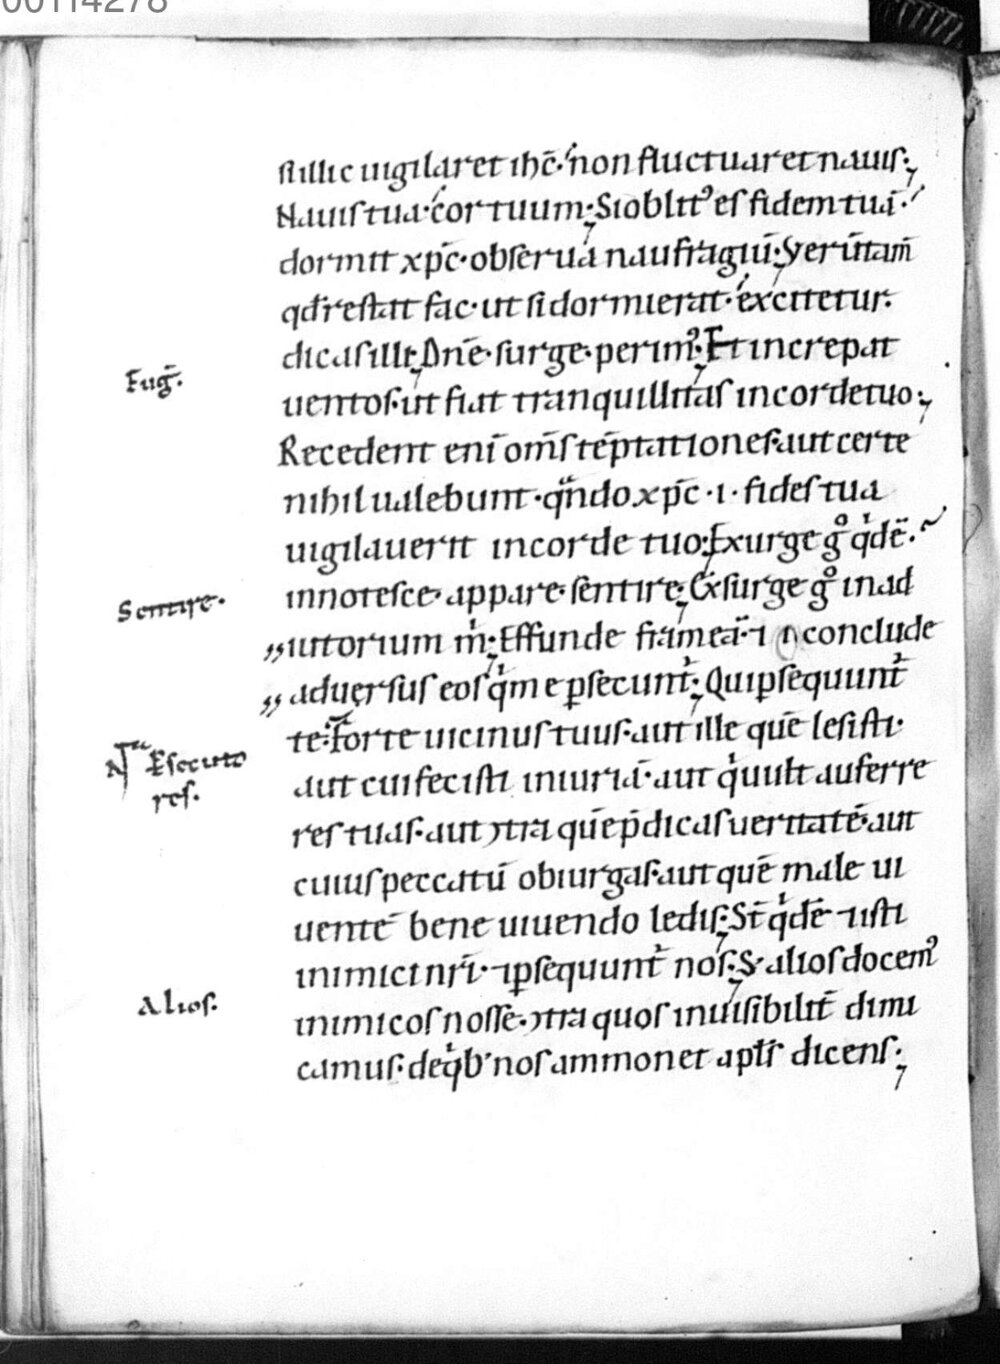 00114278
si illic uigilaret ihc̄· non fluctuaret nauis·;
Nauis tua· cor tuum·; Si oblit᾽ es fidem tuā·
dormit xp̄c· obserua naufragiū·; Verūtam̄
qđ restat fac· ut si dormierat· excitetur·
dicas illi·; Dn̄e· surge· perim᾽·; Et increpat
Fuḡ·
uentos· ut fiat tranquillitas in corde tuo·;
Recedent enī om̄s tēptationes· aut certe
nihil ualebunt· qn̄do xp̄c· i· fides tua
uigilauerit in corde tuo·; Exurge g̊ qͥdē·
Sentire·
innotesce· appare· sentire·; Exsurge g̊ in ad
„ iutorium mͥ·; Effunde frameā· ⁊ conclude
„ aduersus eos qͥ me ꝑsecunt᾽·; Qui ꝑsequunt᾽
te· Forte uicinus tuus· aut ille quē lesisti·
Ꝑsecuto
res·
aut cui fecisti iniuriā· aut qͥ uult auferre
res tuas· aut ↄtra quē p̄dicas ueritatē· aut
cuius peccatū obiurgas· aut quē male ui
uentē bene uiuendo ledis·; St̄ qͥdē ⁊ isti
inimici nr̄i· ⁊ ꝑsequunt᾽ nos·; S; alios docem᾽
Alios·
inimicos nosse· ↄtra quos inuisibilit̄ dimi
camus· de qͥb᾽ nos ammonet apl̄s dicens·;